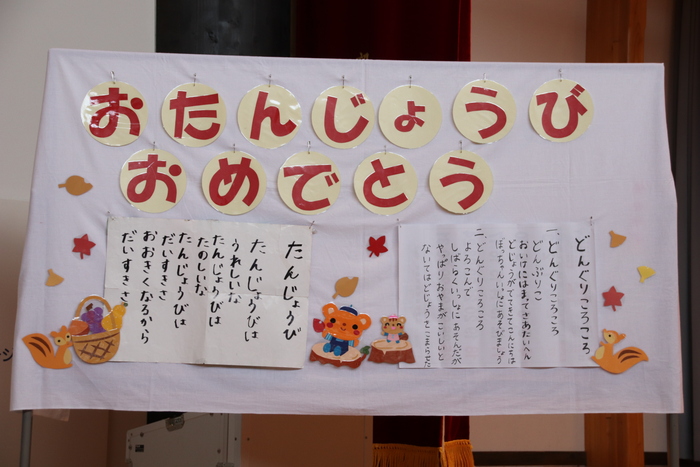 おたんじょうび
おめでとう
たんじょうび
たんじょうびは
うれしいな
たんじょうびは
たのしいな
たんじょうびは
だいすきさ
おおきくなるから
だいすきさ
どんぐりころころ
一、どんぐりころころ
どんぶりこ
おいけにはまって さあたいへん
どじょうがでてきて こんにちは
ぼっちゃんいっしょに あそびましょう
二、どんぐりころころ
よろこんで
しばらくいっしょに あそんだが
やっぱりおやまが こいしいと
ないてはどじょうを こまらせた